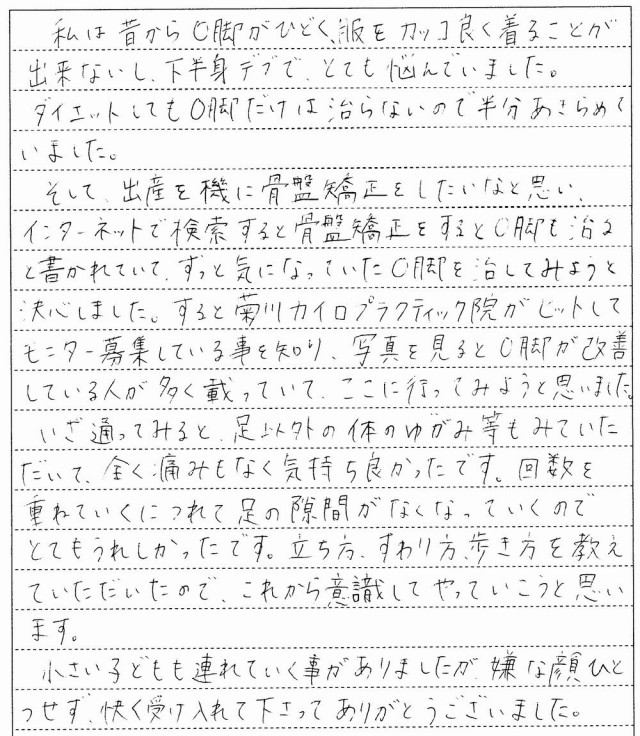 私は昔からO脚がひどく、服をカッコ良く着ることが
出来ないし、下半身デブで、とても悩んでいました。
ダイエットしてもO脚だけは治らないので半分あきらめて
いました。
そして、出産を機に骨盤矯正をしたいなと思い、
インターネットで検索すると骨盤矯正をするとO脚も治る
と書かれていて、ずっと気になっていたO脚を治してみようと
決心しました。すると菊川カイロプラクティック院がヒットして
モニター募集している事を知り、写真を見るとO脚が改善
している人が多く載っていて、ここに行ってみようと思いました。
いざ通ってみると、足以外の体のゆがみ等もみていた
だいて、全く痛みもなく気持ち良かったです。回数を
重ねていくにつれて足の隙間がなくなっていくので
とてもうれしかったです。立ち方、すわり方、歩き方を教え
ていただいたので、これから意識してやっていこうと思い
ます。
小さい子どもも連れていく事がありましたが、嫌な顔ひと
つせず、快く受け入れて下さってありがとうございました。